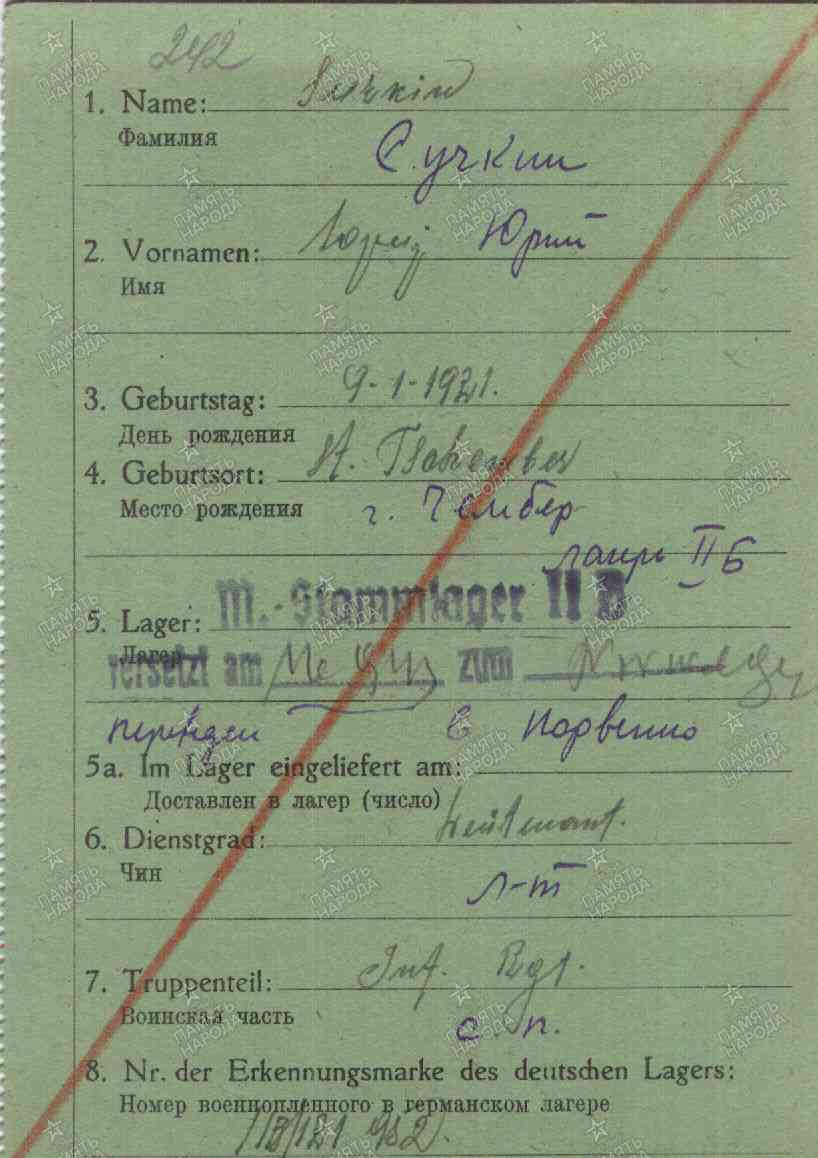 242
1. Name: Surkin
Фамилия
Сучкин
2. Vornamen: Юрий
Имя
3. Geburtstag: 9-1-1921.
День рождения
4. Geburtsort: St. Tschember
Место рождения г. Чембер
лагерь II Б
M.-Stammlager II B
5. Lager:
Лагерь
versetzt am zum Norwegen
переведен в Норвегию
5a. Im Lager eingeliefert am:
Доставлен в лагер (число)
6. Dienstgrad: Leutenant.
Чин
л-т
7. Truppenteil: Inf. Rgt.
Воинская часть
с. п.
8. Nr. der Erkennungsmarke des deutschen Lagers:
Номер военнопленного в германском лагере
ПАМЯТЬ НАРОДА